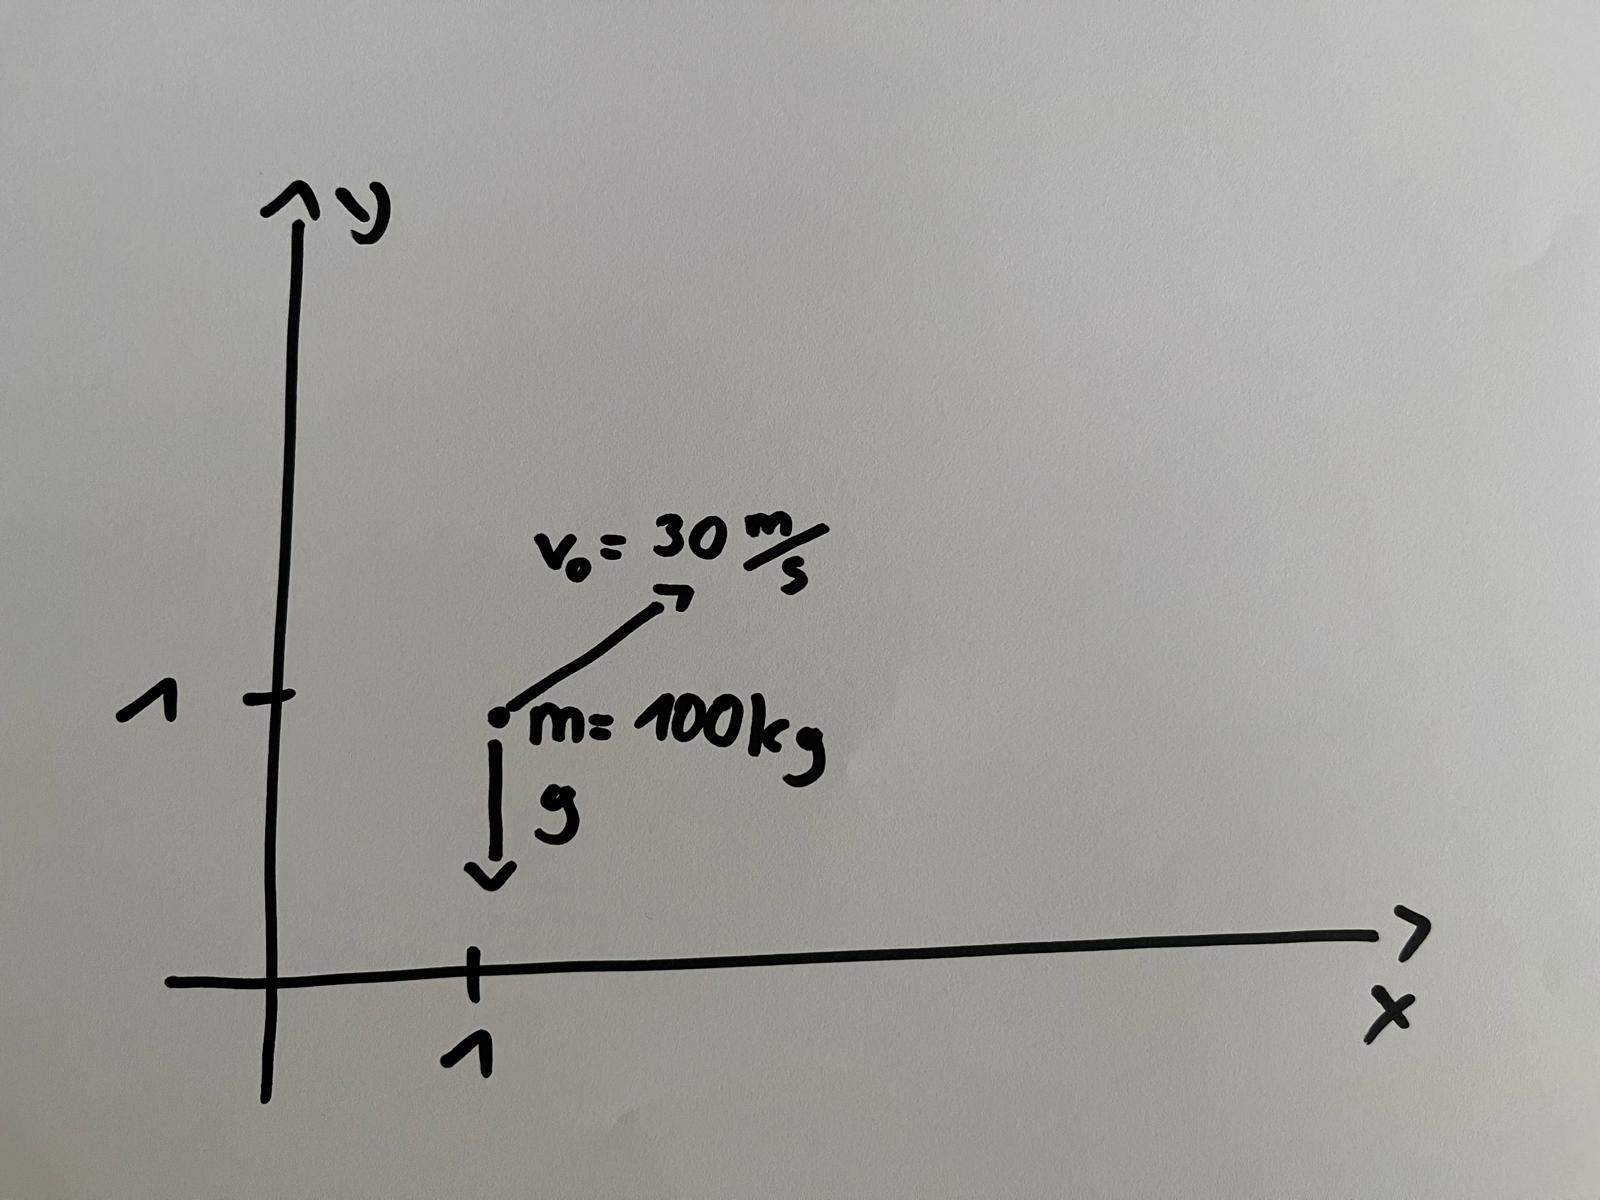 y
v₀ = 30 m/s
1
m = 100kg
g
1
x